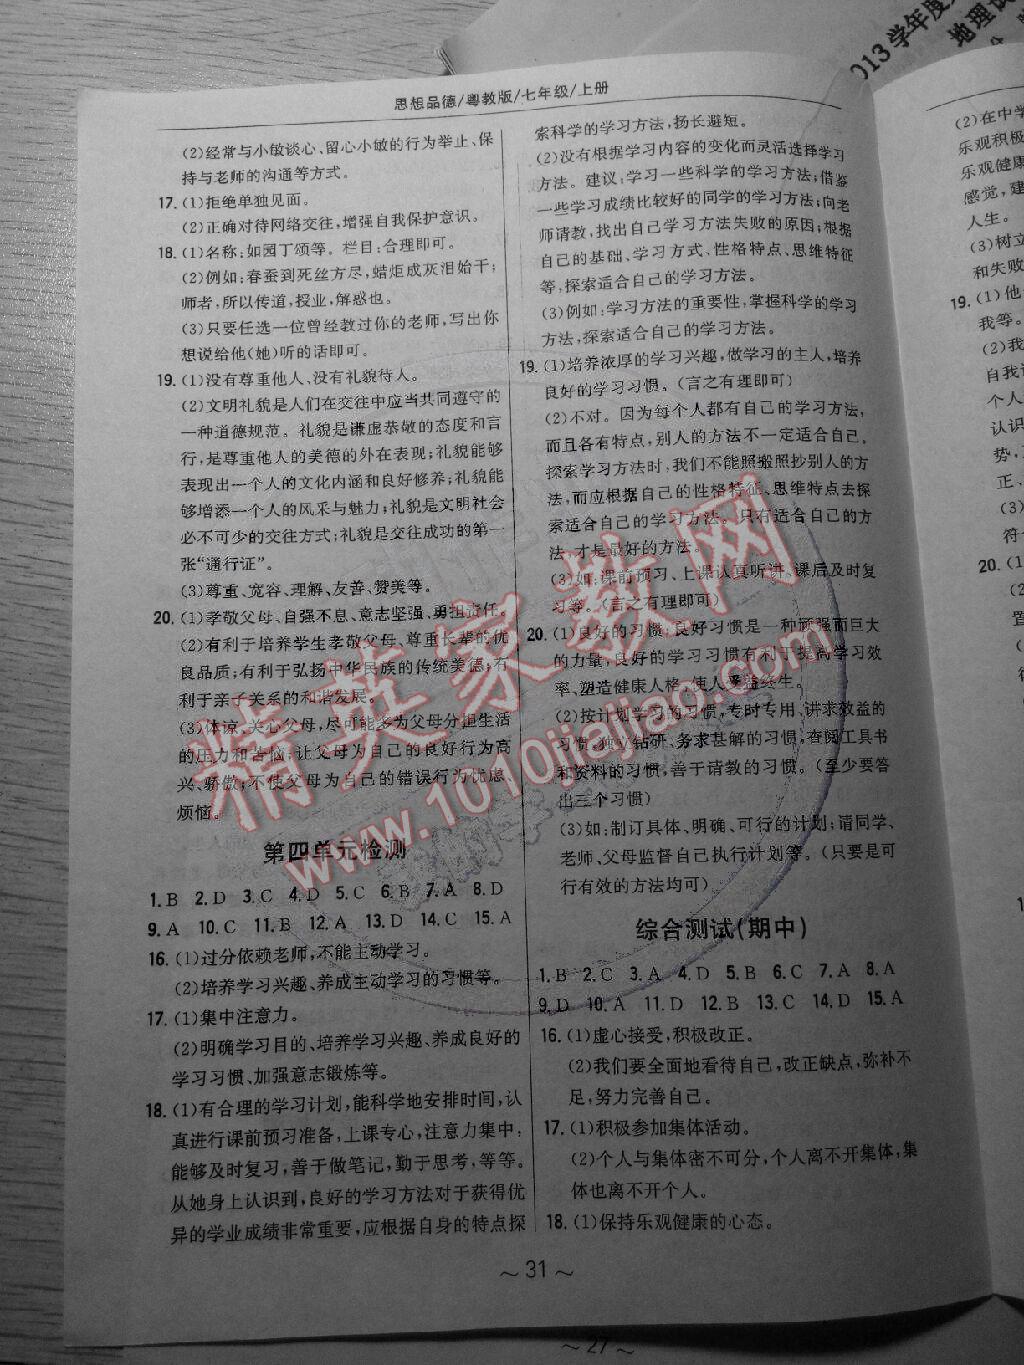 思想品德/粤教版/七年级/上册
(2)经常与小敏谈心、留心小敏的行为举止、保
持与老师的沟通等方式。
17. (1)拒绝单独见面。
(2)正确对待网络交往,增强自我保护意识。
18. (1)名称:如园丁颂等。栏目:合理即可。
(2)例如:春蚕到死丝方尽,蜡炬成灰泪始干;
师者,所以传道,授业,解惑也。
(3)只要任选一位曾经教过你的老师,写出你
想说给他(她)听的话即可。
19. (1)没有尊重他人、没有礼貌待人。
(2)文明礼貌是人们在交往中应当共同遵守的
一种道德规范。礼貌是谦虚恭敬的态度和言
行,是尊重他人的美德的外在表现;礼貌能够
表现出一个人的文化内涵和良好修养;礼貌能
够增添一个人的风采与魅力;礼貌是文明社会
必不可少的交往方式;礼貌是交往成功的第一
张“通行证”。
(3)尊重、宽容、理解、友善、赞美等。
20. (1)孝敬父母、自强不息、意志坚强、勇担责任。
(2)有利于培养学生孝敬父母、尊重长辈的优
良品质;有利于弘扬中华民族的传统美德;有
利于亲子关系的和谐发展。
(3)体谅、关心父母,尽可能多为父母分担生活
的压力和苦恼;让父母为自己的良好行为高
兴、骄傲;不使父母为自己的错误行为忧虑、
烦恼。
第四单元检测
1. B 2. D 3. C 4. D 5. C 6. B 7. A 8. D
9. A 10. C 11. B 12. A 13. D 14. C 15. A
16. (1)过分依赖老师,不能主动学习。
(2)培养学习兴趣、养成主动学习的习惯等。
17. (1)集中注意力。
(2)明确学习目的、培养学习兴趣、养成良好的
学习习惯、加强意志锻炼等。
18. (1)有合理的学习计划,能科学地安排时间,认
真进行课前预习准备,上课专心,注意力集中,
能够及时复习,善于做笔记,勤于思考,等等。
从她身上认识到,良好的学习方法对于获得优
异的学业成绩非常重要,应根据自身的特点探
索科学的学习方法,扬长避短。
(2)没有根据学习内容的变化而灵活选择学习
方法。建议:学习一些科学的学习方法;借鉴
一些学习成绩比较好的同学的学习方法;向老
师请教,找出自己学习方法失败的原因;根据
自己的基础、学习方式、性格特点、思维特征
等,探索适合自己的学习方法。
(3)例如:学习方法的重要性,掌握科学的学习
方法,探索适合自己的学习方法。
19. (1)培养浓厚的学习兴趣,做学习的主人,培养
良好的学习习惯。(言之有理即可)
(2)不对。因为每个人都有自己的学习方法,
而且各有特点,别人的方法不一定适合自己,
探索学习方法时,我们不能照搬照抄别人的方
法,而应根据自己的性格特征、思维特点去探
索适合自己的学习方法。只有适合自己的方
法,才是最好的方法。
(3)如:课前预习、上课认真听讲、课后及时复
习等。(言之有理即可)
20. (1)良好的习惯;良好习惯是一种顽强而巨大
的力量,良好的学习习惯有利于提高学习效
率、塑造健康人格,使人受益终生。
(2)按计划学习的习惯,专时专用、讲求效益的
习惯,独立钻研、务求甚解的习惯,查阅工具书
和资料的习惯,善于请教的习惯。(至少要答
出三个习惯)
(3)如:制订具体、明确、可行的计划;请同学、
老师、父母监督自己执行计划等。(只要是可
行有效的方法均可)
综合测试(期中)
1. B 2. C 3. A 4. D 5. B 6. C 7. A 8. A
9. D 10. A 11. D 12. B 13. C 14. D 15. A
16. (1)虚心接受,积极改正。
(2)我们要全面地看待自己,改正缺点,弥补不
足,努力完善自己。
17. (1)积极参加集体活动。
(2)个人与集体密不可分,个人离不开集体,集
体也离不开个人。
18. (1)保持乐观健康的心态。
~ 31 ~
(2)在中学
乐观积极
乐观健康
感觉,建
人生。
(3)树立
和失败
19. (1)他
我等。
(2)我
自我
个人
认识
势,
正、
(3)
符
20. (1
~ 27 ~
013 学年度
地理试
精英家教网
www.1010jiajiao.com